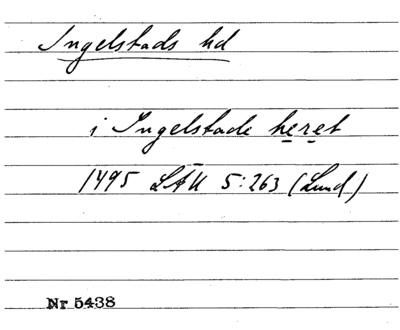 Ingelstads hd
i Ingelstade heret
1495 LÄU 5:263 (Lund)
Nr 5438